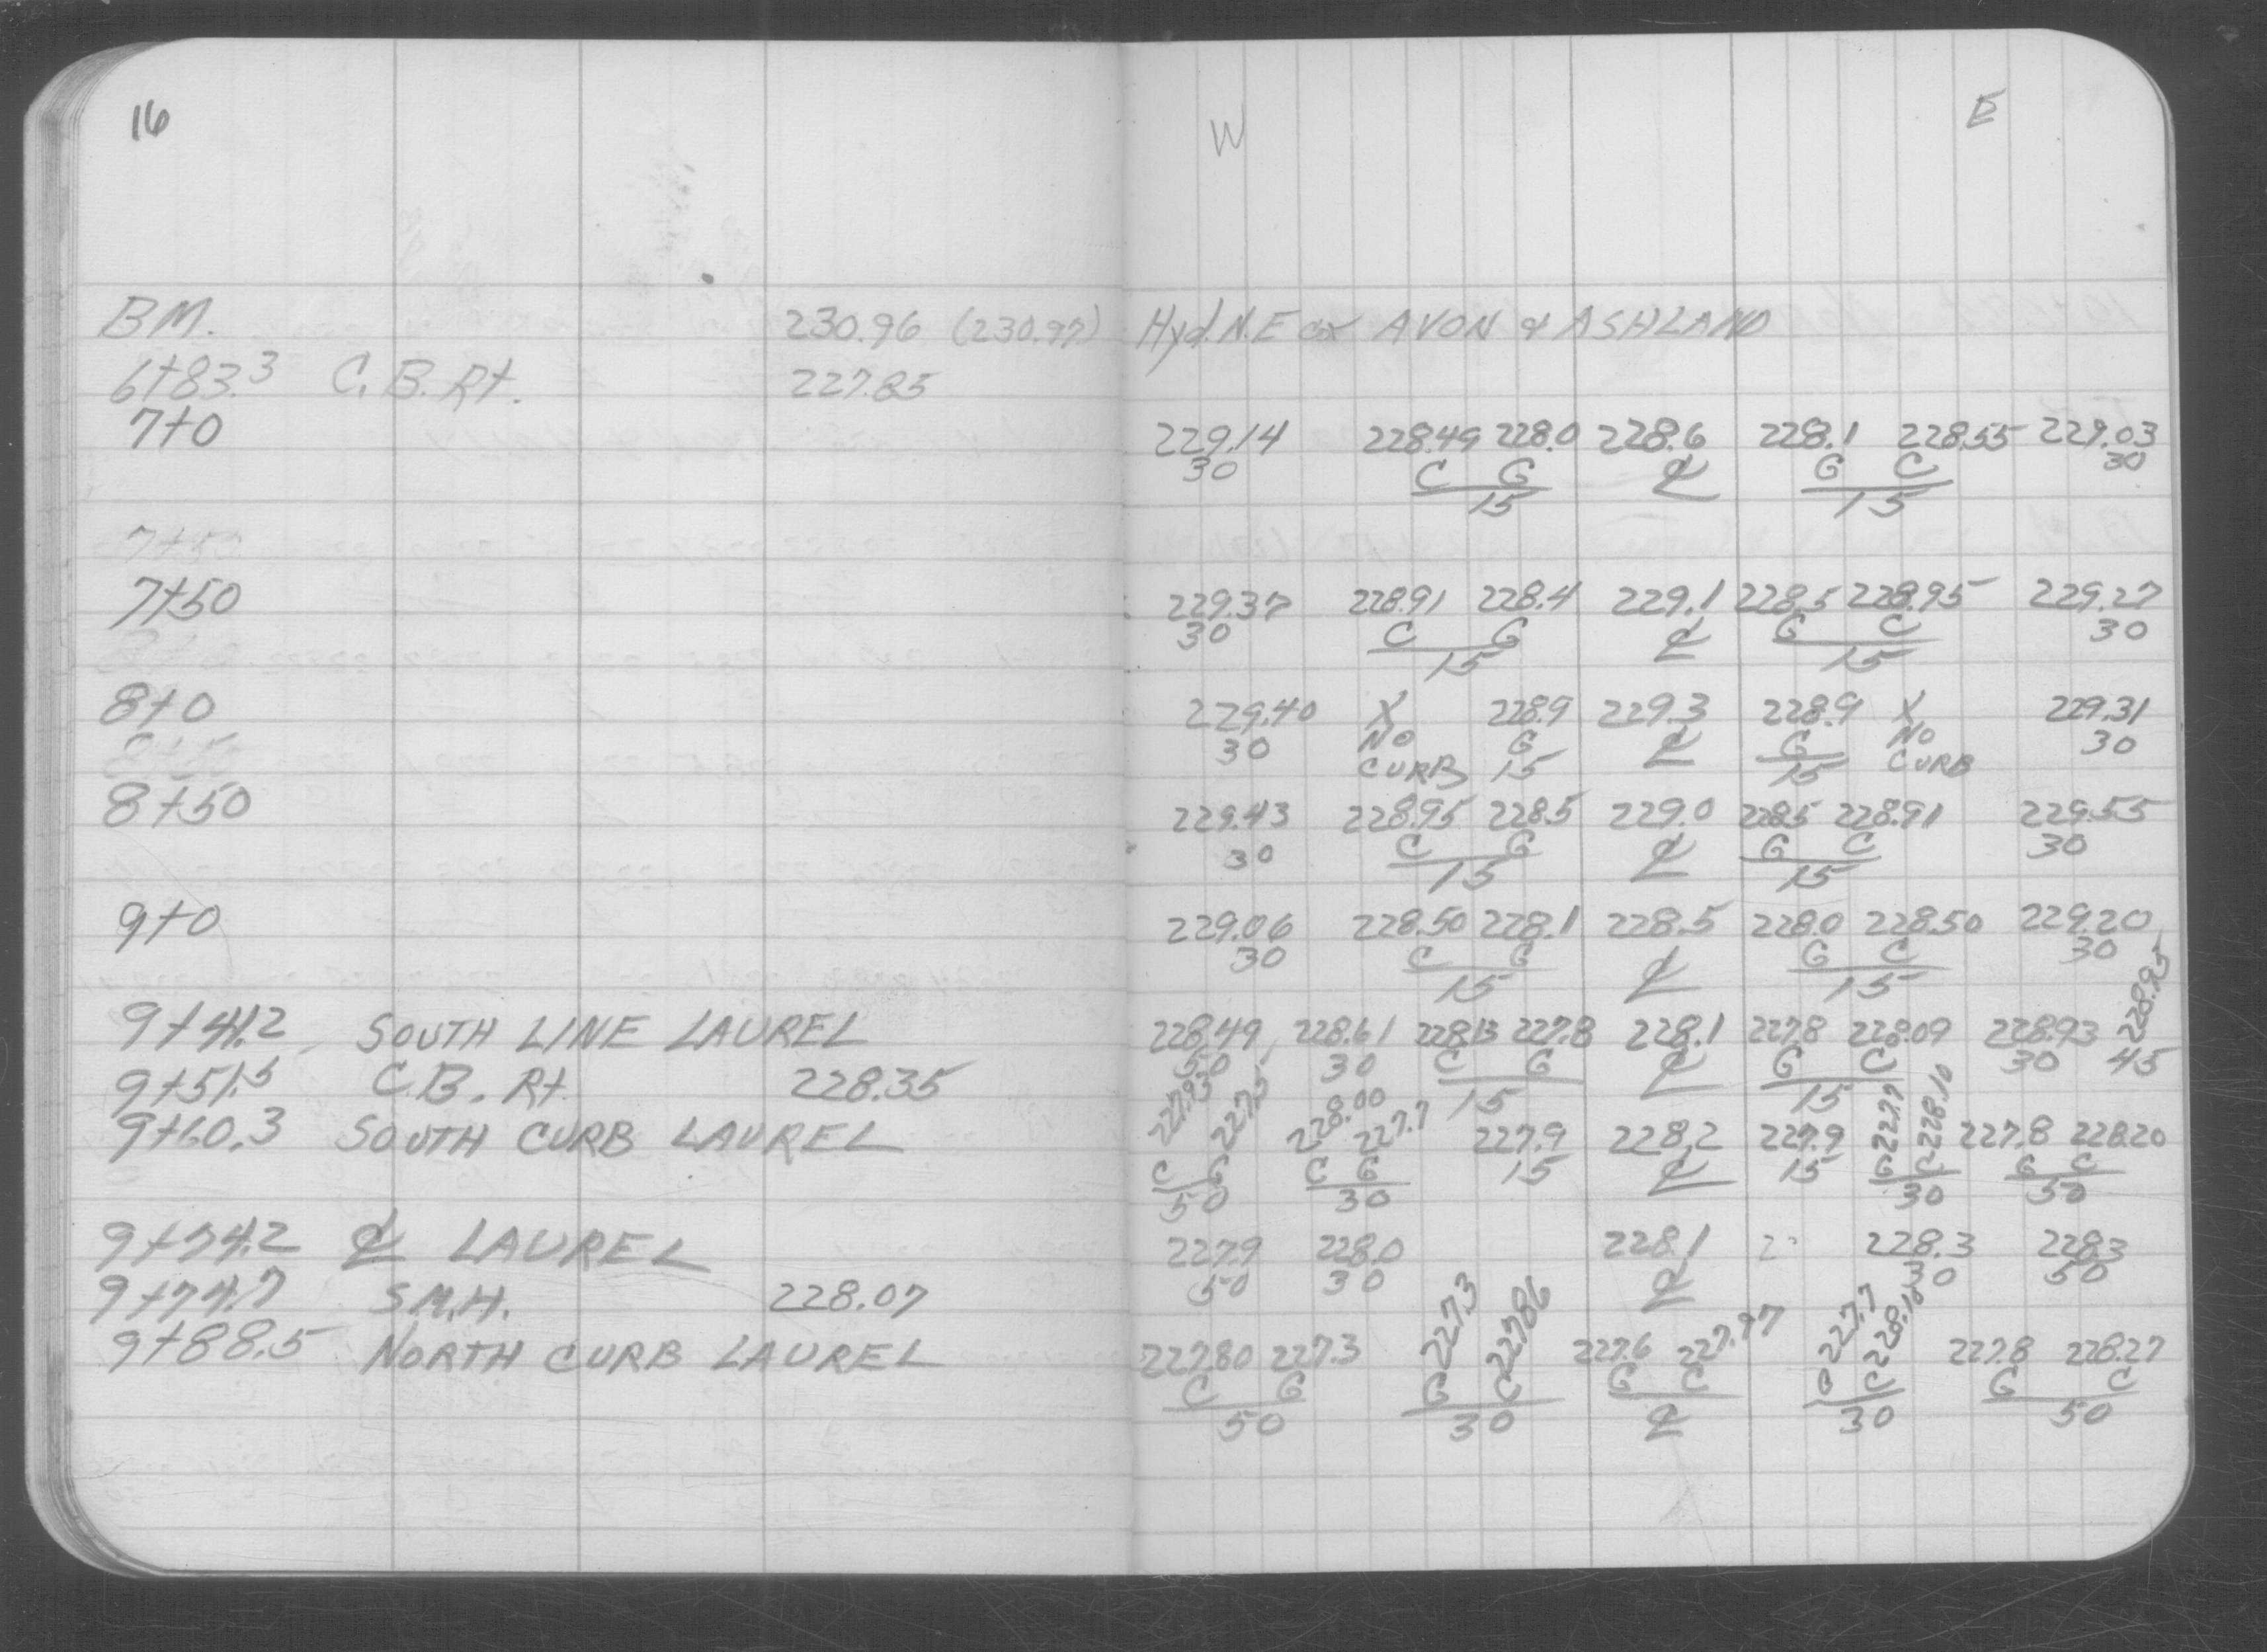 16
W E
BM. 230.96 (230.97) Hyd. N.E cor AVON & ASHLAND
6+83.3 C.B. Rt. 227.85
7+0 229.14 228.49 228.0 228.6 228.1 228.55 229.03
30 C G ℄ G C 30
15 15
7+50
7+50 229.37 228.91 228.4 229.1 228.5 228.95 229.27
30 C G ℄ G C 30
15 15
8+0 229.40 X 228.9 229.3 228.9 X 229.31
30 NO G ℄ G NO 30
CURB 15 15 CURB
8+50 229.43 228.95 228.5 229.0 228.5 228.91 229.55
30 C G ℄ G C 30
15 15
9+0 229.06 228.50 228.1 228.5 228.0 228.50 229.20
30 C G ℄ G C 30
15 15
9+41.2 SOUTH LINE LAUREL 228.49 228.61 228.13 227.8 228.1 227.8 228.09 228.93 228.95
50 30 C G ℄ G C 30 45
15 15
9+51.5 C.B. Rt. 228.35
9+60.3 SOUTH CURB LAUREL 227.93 227.5 228.00 227.7 227.9 228.2 227.9 227.7 228.10 227.8 228.20
C G C G 15 ℄ 15 G C G C
50 30 30 50
9+74.2 ℄ LAUREL 227.9 228.0 228.1 228.3 228.3
50 30 ℄ 30 50
9+74.7 S.M.H. 228.07
9+88.5 NORTH CURB LAUREL 227.80 227.3 227.3 227.86 227.6 227.97 227.7 228.18 227.8 228.27
C G G C G C G C G C
50 30 ℄ 30 50